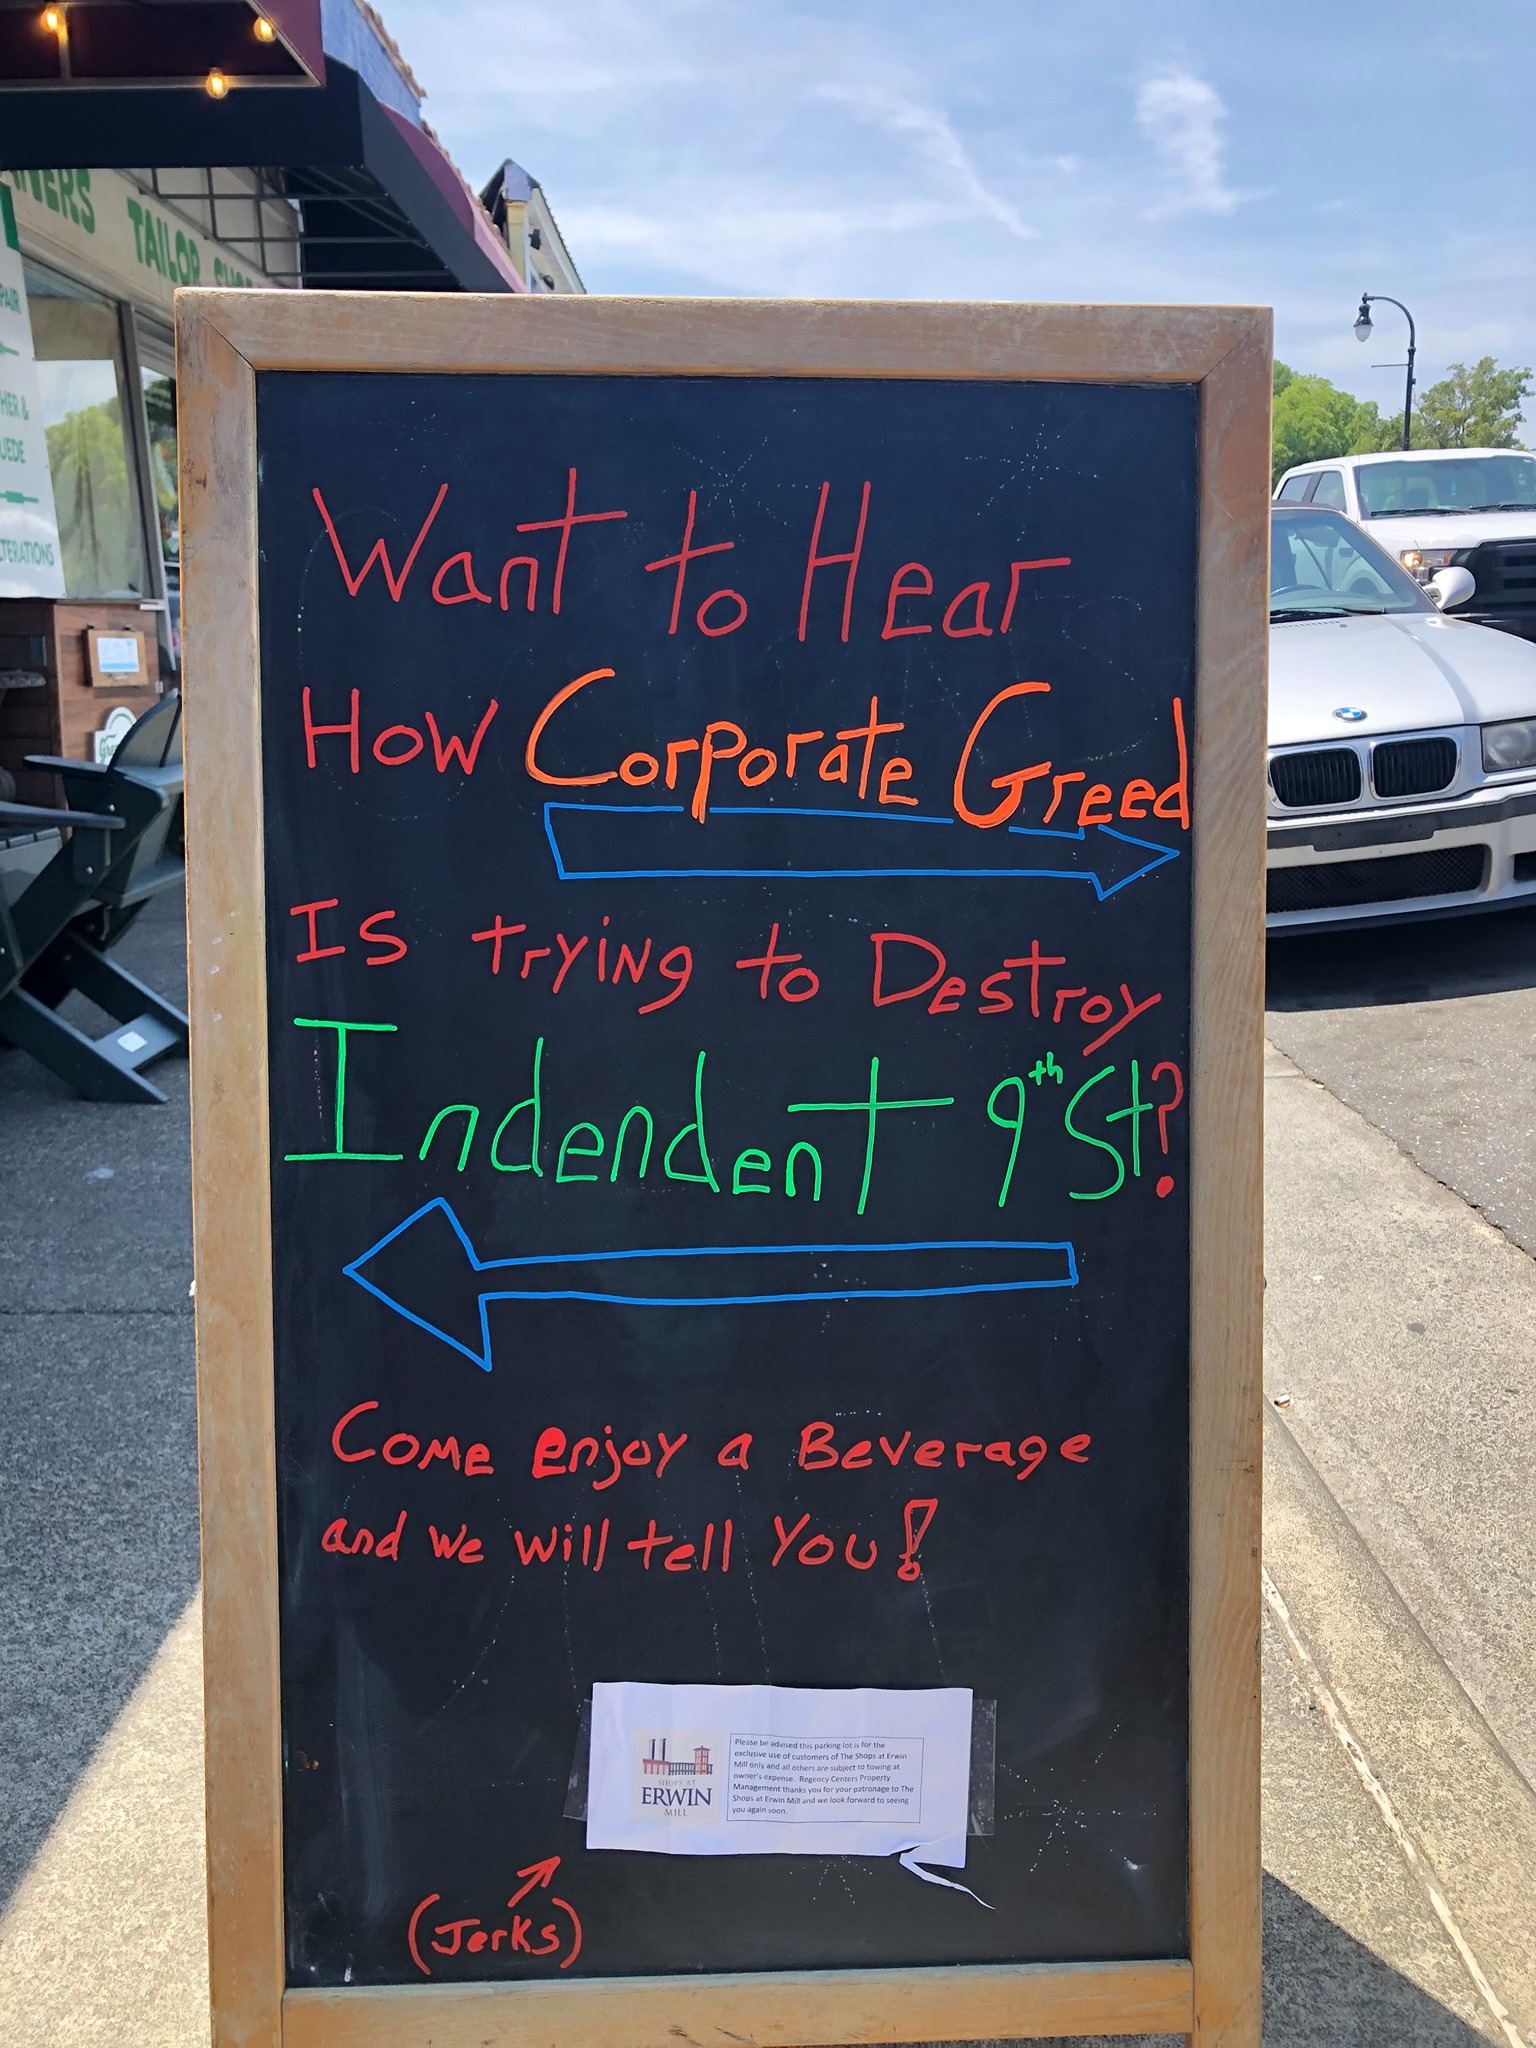 TAILOR
Want to Hear
How Corporate Greed
Is trying to Destroy
Indendent 9th St?
Come enjoy a Beverage
and we will tell You!
SHOPS AT
ERWIN
MILL
Please be advised this parking lot is for the
exclusive use of customers of The Shops at Erwin
Mill only and all others are subject to towing at
owner's expense. Regency Centers Property
Management thanks you for your patronage to The
Shops at Erwin Mill and we look forward to seeing
you again soon.
(Jerks)